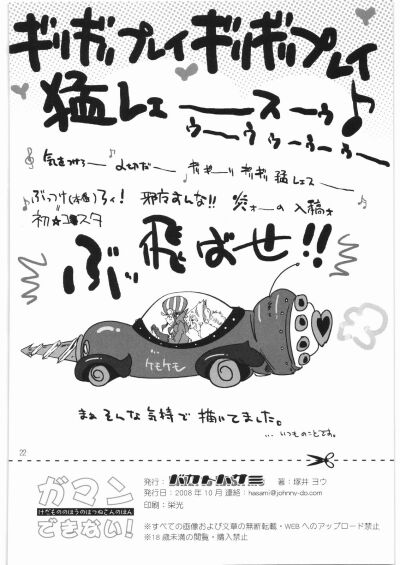 ギリギリプレイギリギリプレイ
猛レェーースゥ♪
ゥーーゥゥーゥーゥー
気をつけろー
ギリギリ 猛レェスー
ぶっつけ(本番)ろィ! 邪存すんな!! の入稿☆
初☆コスタ
ぶっ飛ばせ!!
ケモケモ
まぁそんな気持で描いてました。
…いつものことです。
22
ガマン
けだもののほうのはつねこんのほん
できない!
発行:バカケバケミ 著:塚井 ヨウ
発行日:2008年10月 連絡:hasami@johnny-do.com
印刷:栄光
※すべての画像および文章の無断転載・WEBへのアップロード禁止
※18歳未満の閲覧・購入禁止